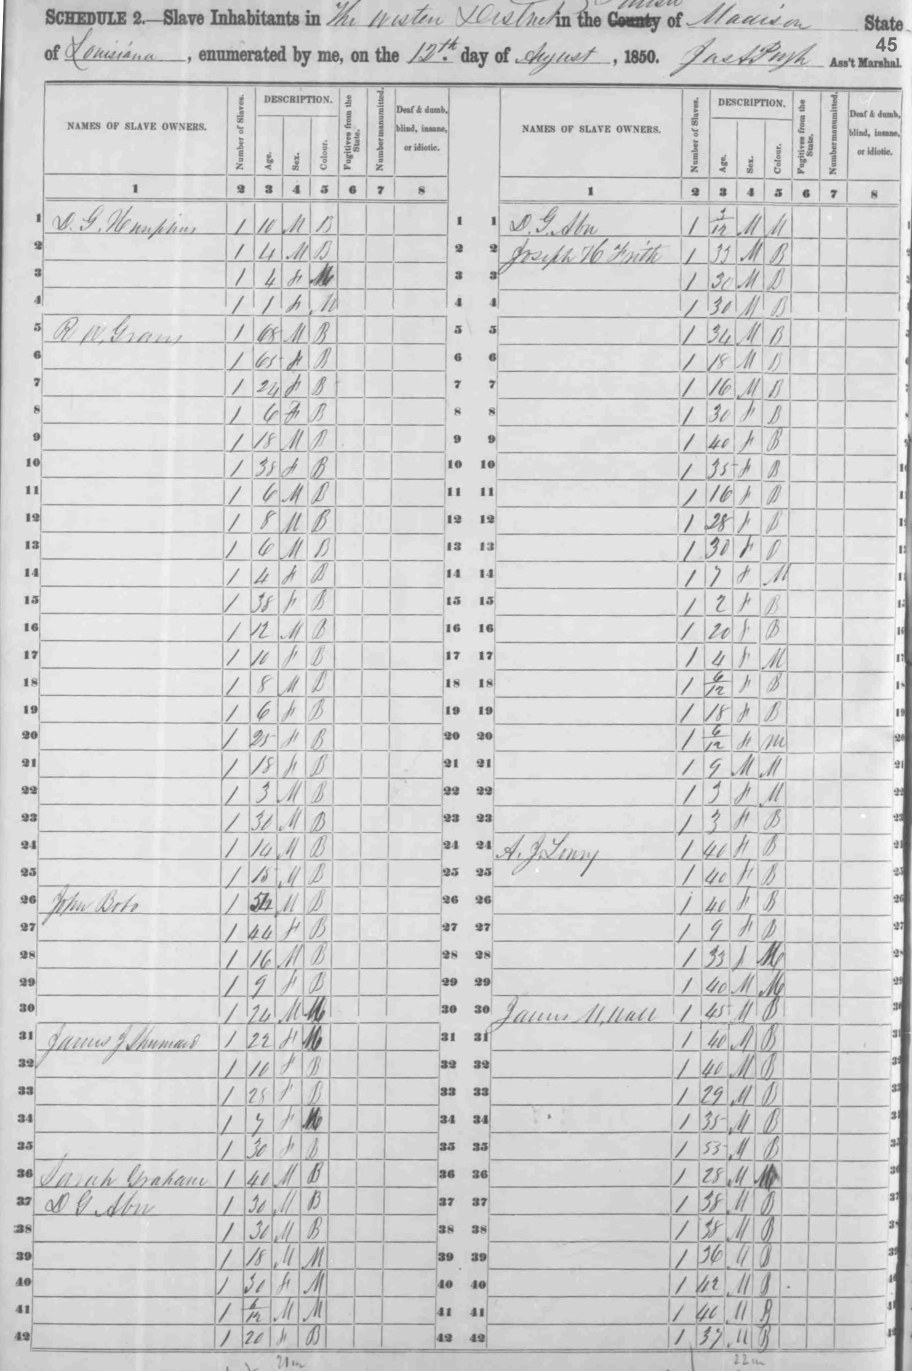 SCHEDULE 2.—Slave Inhabitants in The Western District in the County Parish of Madison State
of Louisiana, enumerated by me, on the 12th day of August, 1850. Ass't Marshal.
45
NAMES OF SLAVE OWNERS. Number of Slaves. DESCRIPTION. Age. Sex. Colour. Fugitives from the State. Number manumitted. Deaf & dumb, blind, insane, or idiotic.
1 2 3 4 5 6 7 8
1 D. G. 1 10 M B 1
2 1 4 M B 2
3 1 4 F M 3
4 1 1 F M 4
5 R W. 1 68 M B 5
6 1 65 F B 6
7 1 24 F B 7
8 1 6 F B 8
9 1 18 M B 9
10 1 38 F B 10
11 1 6 M B 11
12 1 8 M B 12
13 1 6 M B 13
14 1 4 F B 14
15 1 38 F B 15
16 1 12 M B 16
17 1 10 F B 17
18 1 8 M B 18
19 1 6 F B 19
20 1 25 F B 20
21 1 18 F B 21
22 1 3 M B 22
23 1 30 M B 23
24 1 14 M B 24
25 1 15 M B 25
26 John 1 54 M B 26
27 1 44 F B 27
28 1 16 M B 28
29 1 9 F B 29
30 1 24 M M 30
31 James J 1 22 F M 31
32 1 10 F B 32
33 1 25 F B 33
34 1 7 F M 34
35 1 30 F B 35
36 Sarah Graham 1 40 M B 36
37 D G 1 30 M B 37
38 1 30 M B 38
39 1 18 M M 39
40 1 30 F M 40
41 1 6/12 M M 41
42 1 20 F B 42
21 m
NAMES OF SLAVE OWNERS. Number of Slaves. DESCRIPTION. Age. Sex. Colour. Fugitives from the State. Number manumitted. Deaf & dumb, blind, insane, or idiotic.
1 2 3 4 5 6 7 8
1 D. G. 1 /12 M M
2 Joseph H Frith 1 33 M B
3 1 30 M B
4 1 30 M B
5 1 34 M B
6 1 18 M B
7 1 16 M B
8 1 30 F B
9 1 40 F B
10 1 35 F B
11 1 16 F B
12 1 28 F B
13 1 30 F B
14 1 7 F M
15 1 2 F B
16 1 20 F B
17 1 4 F M
18 1 6/12 F B
19 1 18 F B
20 1 6/12 F M
21 1 9 M M
22 1 3 F M
23 1 3 F B
24 A. J. 1 40 F B
25 1 40 F B
26 1 40 F B
27 1 9 F B
28 1 33 F M
29 1 40 M M
30 James M. 1 45 M B
31 1 40 M B
32 1 40 M B
33 1 29 M B
34 1 35 M B
35 1 55 M B
36 1 28 M M
37 1 38 M B
38 1 38 M B
39 1 36 M B
40 1 42 M B
41 1 40 M B
42 1 37 M B
22 m